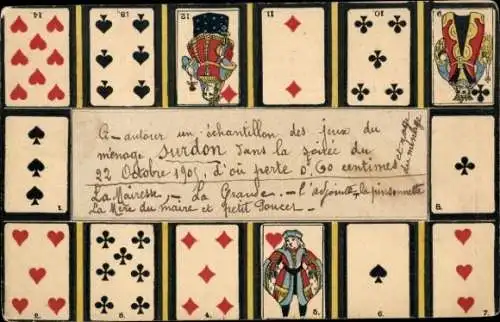 14. 13. 12. 11. 10. 9.
Ci-autour un échantillon des jeux du
ménage surdon dans la soirée du
22 Octobre 1901, d'où perte 0,60 centimes
La Mairesse, - La Grause - l'adjointe - la pinsonnette
La Mère du maire et petit Poucet.
et gage
du ménage
1. 8.
2. 3. 4. 5. 6. 7.